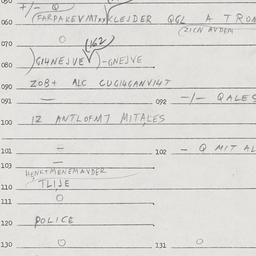 +/- Q
060 (FARPAKEVMTxx KLEJDER QGL A TRON
(ZICN AVDEM
070 O
(162)
080 )GI4NEJVE V)-GNEJVE
090 ZOB+ ALC CUGI4GANVI4T
091 — 092 -/- QALES
100 IZ ANTLOFM7 MITALES
101 — 102 - Q MIT AL
103 —
HENKTMENEMAVDER
110 TLIJE
111 O
120 POLICE
130 O 131 O